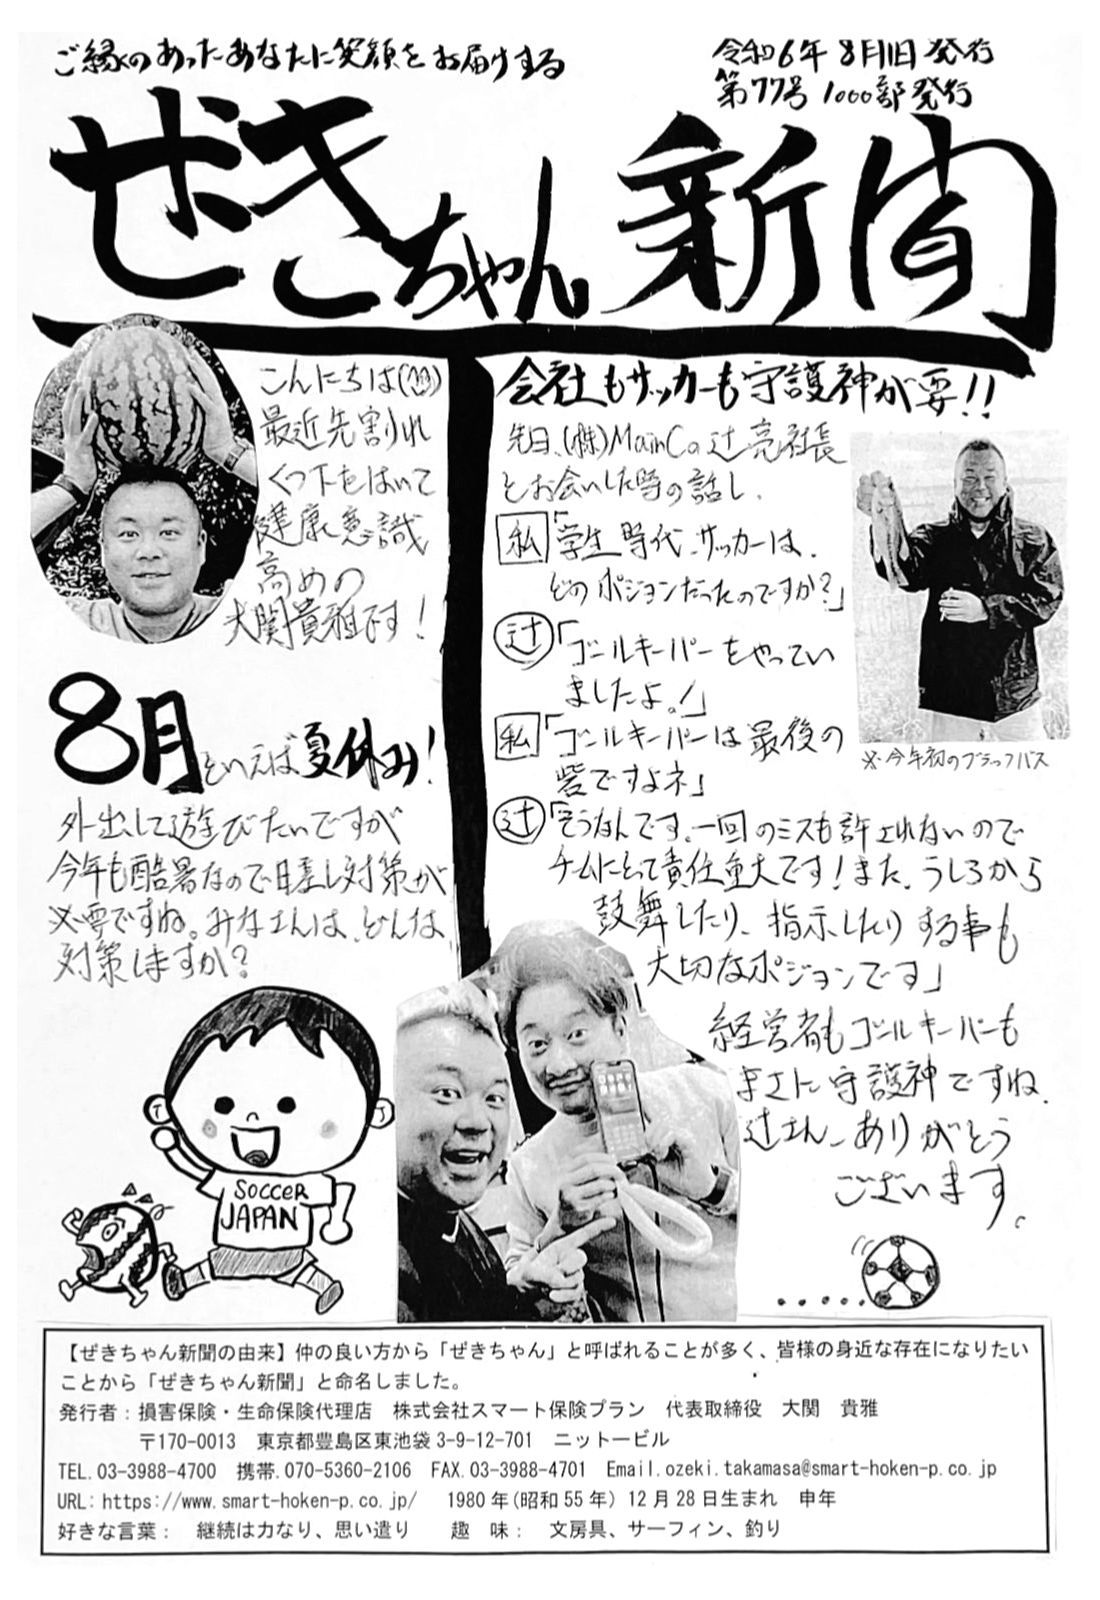 ご縁のあったあなたに笑顔をお届けする
令和6年8月1日発行
第77号 1000部発行
ぜきちゃん新聞
こんにちは(^^)
最近先割れ
くつ下をはいて
健康意識
高めの
大関貴雅です!
8月といえば夏休み!
外出して遊びたいですが
今年も酷暑なので日差し対策が
必要ですね。みなさんは、どんな
対策しますか?
SOCCER
JAPAN
会社もサッカーも守護神が要!!
先日、(株)MainCの辻亮社長
とお会いした時の話し。
私「学生時代、サッカーは、
どのポジョンだったのですか?」
辻「ゴールキーパーをやってい
ましたよ。!」
私「ゴールキーパーは最後の
砦ですよネ」
辻「そうなんです。一回のミスも許されないので
チームにとって責任重大です!また、うしろから
鼓舞したり、指示したりする事も
大切なポジョンです」
経営者もゴールキーパーも
まさに守護神ですね。
辻さん、ありがとう
ございます。
※今年初のブラックバス
【ぜきちゃん新聞の由来】仲の良い方から「ぜきちゃん」と呼ばれることが多く、皆様の身近な存在になりたい
ことから「ぜきちゃん新聞」と命名しました。
発行者:損害保険・生命保険代理店 株式会社スマート保険プラン 代表取締役 大関 貴雅
〒170-0013 東京都豊島区東池袋3-9-12-701 ニットービル
TEL.03-3988-4700 携帯.070-5360-2106 FAX.03-3988-4701 Email.ozeki.takamasa@smart-hoken-p.co.jp
URL:https://www.smart-hoken-p.co.jp/ 1980年(昭和55年)12月28日生まれ 申年
好きな言葉: 継続は力なり、思い遣り 趣 味: 文房具、サーフィン、釣り